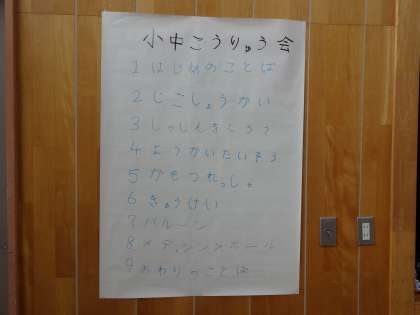 小中こうりゅう会
1 はじめのことば
2 じこしょうかい
3 しっしんをとろう
4 ようかいたいそう
5 かもつれっしゃ
6 きゅうけい
7 バルーン
8 メディシンボール
9 おわりのことば